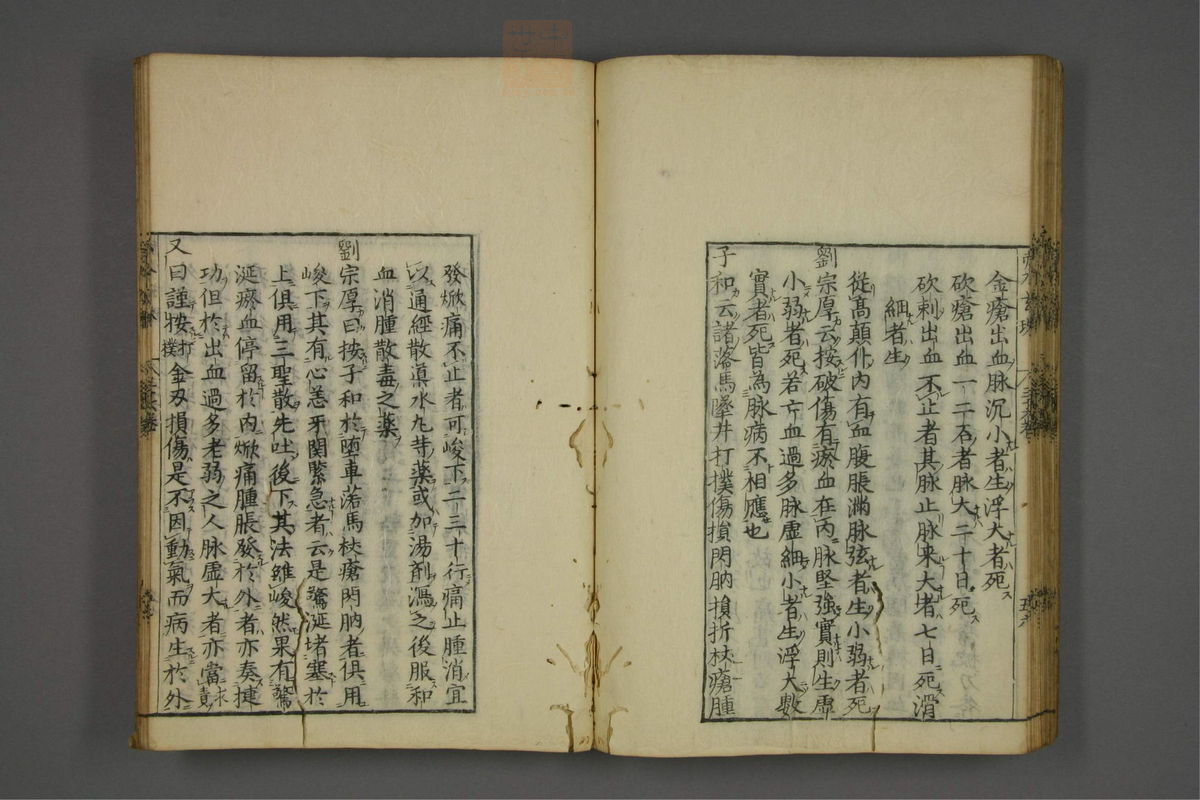 金瘡出血脉沉小者生浮大者死
砍瘡出血一二石者脉大二十日死
砍刺出血不止者其脉止脉来大者七日死滑
細者生
從髙顛仆内有血腹脹滿脉弦者生小弱者死
劉宗厚云按破傷有瘀血在内脉堅強實則生虚
小弱者死若亡血過多脉虚細小者生浮大數
實者死皆為脉病不相應也
子和云諸落馬墜井打撲傷損閃肭損折杖瘡腫
發焮痛不止者可峻下二三十行痛止腫消宜
以通經散濬水丸等藥或加湯劑瀉之後服和
血消腫散毒之藥
劉宗厚曰按子和於堕車落馬杖瘡閃肭者俱用
峻下其有心恙牙関緊急者云是驚涎堵塞於
上俱用三聖散先吐後下其法雖峻然果有驚
涎瘀血停留於内焮痛腫脹發於外者亦奏捷
功但於出血過多老弱之人脉虚大者亦當求責
又曰謹按打撲金刄損傷是不因動氣而病生於外